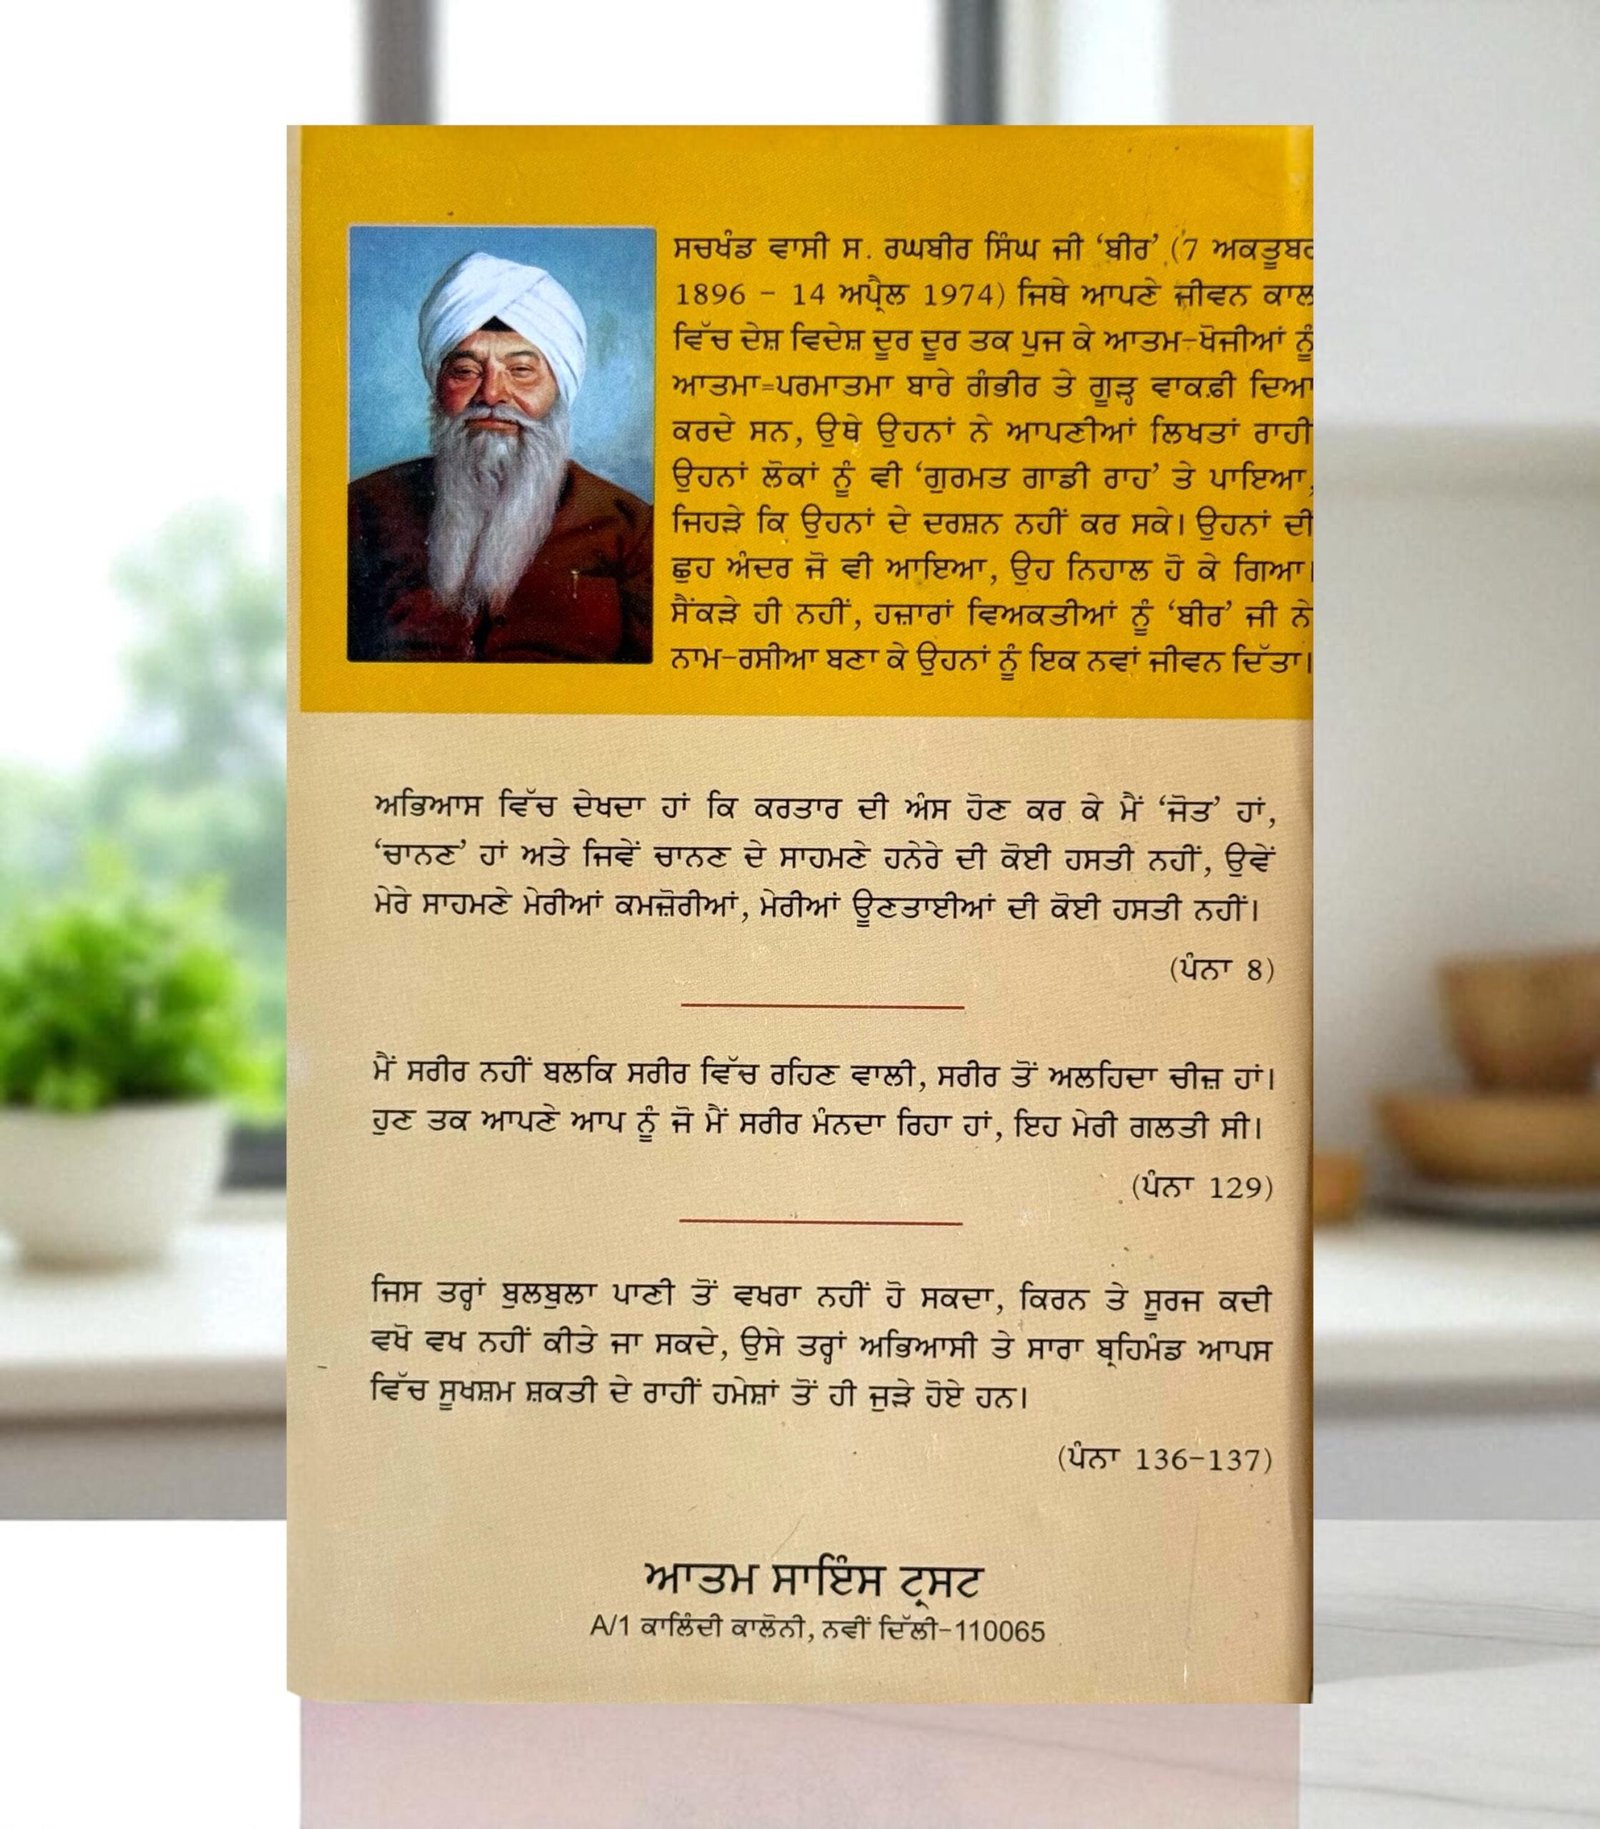 ਸਚਖੰਡ ਵਾਸੀ ਸ. ਰਘਬੀਰ ਸਿੰਘ ਜੀ ‘ਬੀਰ’ (7 ਅਕਤੂਬਰ
1896 - 14 ਅਪ੍ਰੈਲ 1974) ਜਿਥੇ ਆਪਣੇ ਜੀਵਨ ਕਾਲ
ਵਿੱਚ ਦੇਸ਼ ਵਿਦੇਸ਼ ਦੂਰ ਦੂਰ ਤਕ ਪੁਜ ਕੇ ਆਤਮ-ਖੋਜੀਆਂ ਨੂੰ
ਆਤਮਾ=ਪਰਮਾਤਮਾ ਬਾਰੇ ਗੰਭੀਰ ਤੇ ਗੂੜ੍ਹ ਵਾਕਫ਼ੀ ਦਿਆ
ਕਰਦੇ ਸਨ, ਉਥੇ ਉਹਨਾਂ ਨੇ ਆਪਣੀਆਂ ਲਿਖਤਾਂ ਰਾਹੀ
ਉਹਨਾਂ ਲੋਕਾਂ ਨੂੰ ਵੀ ‘ਗੁਰਮਤ ਗਾਡੀ ਰਾਹ’ ਤੇ ਪਾਇਆ,
ਜਿਹੜੇ ਕਿ ਉਹਨਾਂ ਦੇ ਦਰਸ਼ਨ ਨਹੀਂ ਕਰ ਸਕੇ। ਉਹਨਾਂ ਦੀ
ਛੁਹ ਅੰਦਰ ਜੋ ਵੀ ਆਇਆ, ਉਹ ਨਿਹਾਲ ਹੋ ਕੇ ਗਿਆ।
ਸੈਂਕੜੇ ਹੀ ਨਹੀਂ, ਹਜ਼ਾਰਾਂ ਵਿਅਕਤੀਆਂ ਨੂੰ ‘ਬੀਰ’ ਜੀ ਨੇ
ਨਾਮ-ਰਸੀਆ ਬਣਾ ਕੇ ਉਹਨਾਂ ਨੂੰ ਇਕ ਨਵਾਂ ਜੀਵਨ ਦਿੱਤਾ।
ਅਭਿਆਸ ਵਿੱਚ ਦੇਖਦਾ ਹਾਂ ਕਿ ਕਰਤਾਰ ਦੀ ਅੰਸ ਹੋਣ ਕਰ ਕੇ ਮੈਂ ‘ਜੋਤ’ ਹਾਂ,
‘ਚਾਨਣ’ ਹਾਂ ਅਤੇ ਜਿਵੇਂ ਚਾਨਣ ਦੇ ਸਾਹਮਣੇ ਹਨੇਰੇ ਦੀ ਕੋਈ ਹਸਤੀ ਨਹੀਂ, ਉਵੇਂ
ਮੇਰੇ ਸਾਹਮਣੇ ਮੇਰੀਆਂ ਕਮਜ਼ੋਰੀਆਂ, ਮੇਰੀਆਂ ਊਣਤਾਈਆਂ ਦੀ ਕੋਈ ਹਸਤੀ ਨਹੀਂ।
(ਪੰਨਾ 8)
ਮੈਂ ਸਰੀਰ ਨਹੀਂ ਬਲਕਿ ਸਰੀਰ ਵਿੱਚ ਰਹਿਣ ਵਾਲੀ, ਸਰੀਰ ਤੋਂ ਅਲਹਿਦਾ ਚੀਜ਼ ਹਾਂ।
ਹੁਣ ਤਕ ਆਪਣੇ ਆਪ ਨੂੰ ਜੋ ਮੈਂ ਸਰੀਰ ਮੰਨਦਾ ਰਿਹਾ ਹਾਂ, ਇਹ ਮੇਰੀ ਗਲਤੀ ਸੀ।
(ਪੰਨਾ 129)
ਜਿਸ ਤਰ੍ਹਾਂ ਬੁਲਬੁਲਾ ਪਾਣੀ ਤੋਂ ਵਖਰਾ ਨਹੀਂ ਹੋ ਸਕਦਾ, ਕਿਰਨ ਤੇ ਸੂਰਜ ਕਦੀ
ਵਖੋ ਵਖ ਨਹੀਂ ਕੀਤੇ ਜਾ ਸਕਦੇ, ਉਸੇ ਤਰ੍ਹਾਂ ਅਭਿਆਸੀ ਤੇ ਸਾਰਾ ਬ੍ਰਹਿਮੰਡ ਆਪਸ
ਵਿੱਚ ਸੂਖਸ਼ਮ ਸ਼ਕਤੀ ਦੇ ਰਾਹੀਂ ਹਮੇਸ਼ਾਂ ਤੋਂ ਹੀ ਜੁੜੇ ਹੋਏ ਹਨ।
(ਪੰਨਾ 136-137)
ਆਤਮ ਸਾਇੰਸ ਟ੍ਰਸਟ
A/1 ਕਾਲਿੰਦੀ ਕਾਲੋਨੀ, ਨਵੀਂ ਦਿੱਲੀ-110065